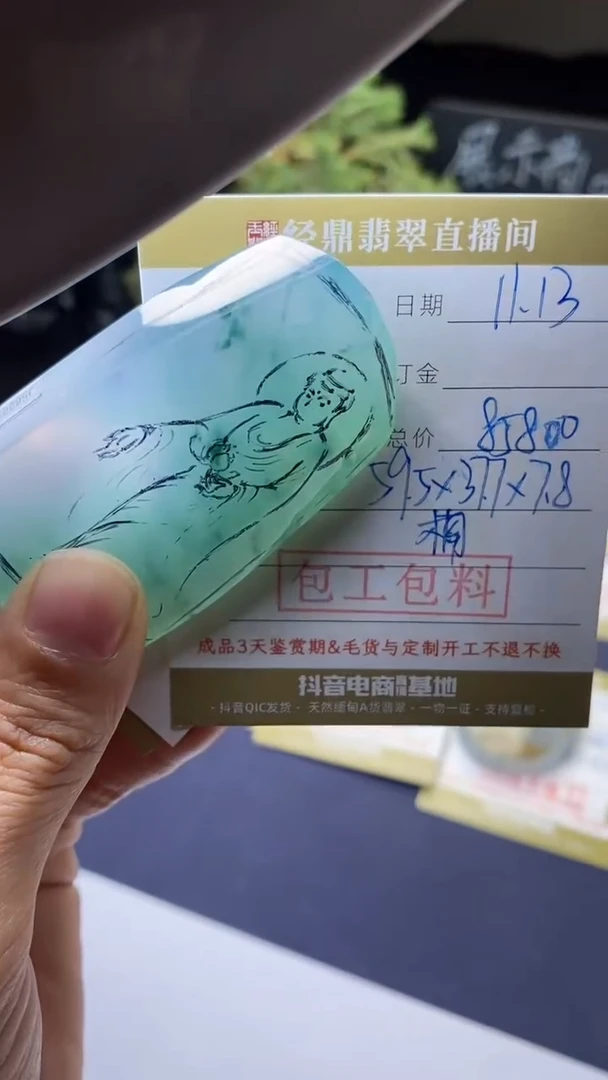 展示商
经鼎翡翠直播间
日期 11.13
订金
总价 85800
59.5×37.7×7.8
包工包料
成品3天鉴赏期&毛货与定制开工不退不换
抖音电商基地
- 抖音QIC发货 - 天然缅甸A货翡翠 - 一物一证 - 支持复检 -